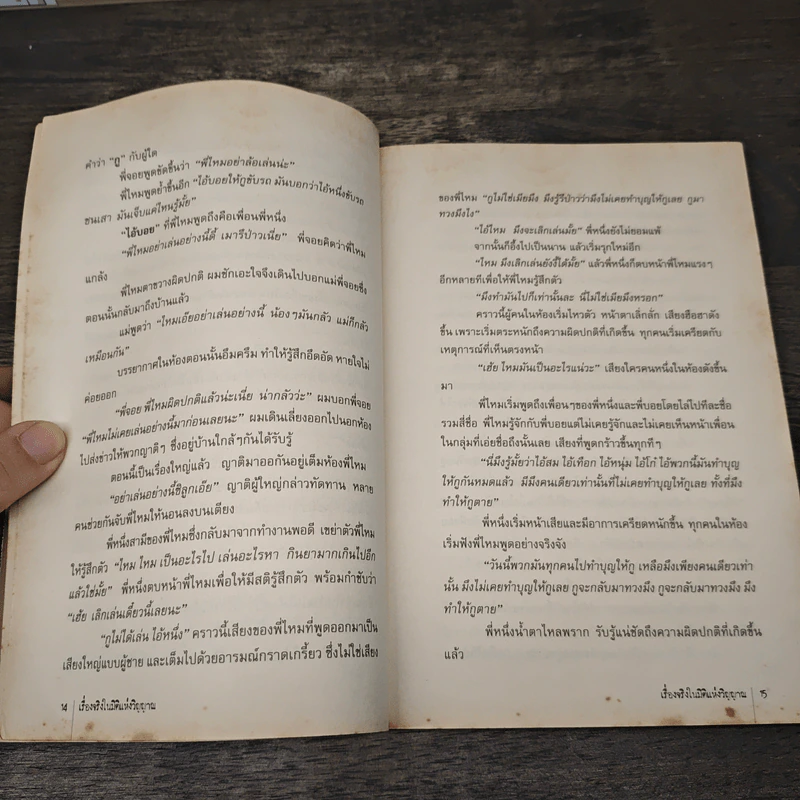 คำว่า "กู" กับผู้ใด
พี่จอยพูดขัดขึ้นว่า "พี่ไหมอย่าล้อเล่นน่ะ"
พี่ไหมพูดย้ำขึ้นอีก "ไอ้บอยให้กูขับรถ มันบอกว่าไอ้หนึ่งขับรถ
ชนเสา มันเจ็บแค่ไหนรู้มั้ย"
"ไอ้บอย" ที่พี่ไหมพูดถึงคือเพื่อนพี่หนึ่ง
"พี่ไหมอย่าเล่นอย่างนี้ดิ์ เมารึป่าวเนี่ย" พี่จอยคิดว่าพี่ไหม
แกล้ง
พี่ไหมตาขวางผิดปกติ ผมชักเอะใจจึงเดินไปบอกแม่พี่จอยซึ่ง
ตอนนั้นกลับมาถึงบ้านแล้ว
แม่พูดว่า "ไหมเอ๊ยอย่าเล่นอย่างนี้ น้องๆมันกลัว แม่ก็กลัว
เหมือนกัน"
บรรยากาศในห้องตอนนั้นอึมครึม ทำให้รู้สึกอึดอัด หายใจไม่
ค่อยออก
"พี่จอย พี่ไหมผิดปกติแล้วน่ะเนี่ย น่ากลัวว่ะ" ผมบอกพี่จอย
"พี่ไหมไม่เคยเล่นอย่างนี้มาก่อนเลยนะ" ผมเดินเลี่ยงออกไปนอกห้อง
ไปส่งข่าวให้พวกญาติๆ ซึ่งอยู่บ้านใกล้ๆกันได้รับรู้
ตอนนี้เป็นเรื่องใหญ่แล้ว ญาติมาออกันอยู่เต็มห้องพี่ไหม
"อย่าเล่นอย่างนี้ซิลูกเอ๊ย" ญาติผู้ใหญ่กล่าวทัดทาน หลาย
คนช่วยกันจับพี่ไหมให้นอนลงบนเตียง
พี่หนึ่งสามีของพี่ไหมซึ่งกลับมาจากทำงานพอดี เขย่าตัวพี่ไหม
ให้รู้สึกตัว "ไหม ไหม เป็นอะไรไป เล่นอะไรหา กินยามากเกินไปอีก
แล้วใช่มั้ย" พี่หนึ่งตบหน้าพี่ไหมเพื่อให้มีสติรู้สึกตัว พร้อมกำชับว่า
"เฮ้ย เลิกเล่นเดี๋ยวนี้เลยนะ"
"กูไม่ได้เล่น ไอ้หนึ่ง" คราวนี้เสียงของพี่ไหมที่พูดออกมาเป็น
เสียงใหญ่แบบผู้ชาย และเต็มไปด้วยอารมณ์กราดเกรี้ยว ซึ่งไม่ใช่เสียง
14 เรื่องจริงในมิติแห่งวิญญาณ
ของพี่ไหม "กูไม่ใช่เมียมึง มึงรู้รึป่าวว่ามึงไม่เคยทำบุญให้กูเลย กูมา
ทวงมึงไง"
"ไอ้ไหม มึงจะเลิกเล่นมั้ย" พี่หนึ่งยังไม่ยอมแพ้
จากนั้นก็อึ้งไปเป็นนาน แล้วเริ่มรุกใหม่อีก
"ไหม มึงเลิกเล่นยังงี้ได้มั้ย" แล้วพี่หนึ่งก็ตบหน้าพี่ไหมแรงๆ
อีกหลายทีเพื่อให้พี่ไหมรู้สึกตัว
"มึงทำมันไปก็เท่านั้นละ นี่ไม่ใช่เมียมึงหรอก"
คราวนี้ผู้คนในห้องเริ่มไหวตัว หน้าตาเลิ่กลั่ก เสียงฮือฮาดัง
ขึ้น เพราะเริ่มตระหนักถึงความผิดปกติที่เกิดขึ้น ทุกคนเริ่มเครียดกับ
เหตุการณ์ที่เห็นตรงหน้า
"เฮ้ย ไหมมันเป็นอะไรแน่วะ" เสียงใครคนหนึ่งในห้องดังขึ้น
มา
พี่ไหมเริ่มพูดถึงเพื่อนๆของพี่หนึ่งและพี่บอยโดยไล่ไปทีละชื่อ
รวมสี่ชื่อ พี่ไหมรู้จักกับพี่บอยแต่ไม่เคยรู้จักและไม่เคยเห็นหน้าเพื่อน
ในกลุ่มที่เอ่ยชื่อถึงนั้นเลย เสียงที่พูดกร้าวขึ้นทุกทีๆ
"นี่มึงรู้มั้ยว่าไอ้สม ไอ้เทือก ไอ้หนุ่ม ไอ้โก๋ ไอ้พวกนี้มันทำบุญ
ให้กูกันหมดแล้ว มีมึงคนเดียวเท่านั้นที่ไม่เคยทำบุญให้กูเลย ทั้งที่มึง
ทำให้กูตาย"
พี่หนึ่งเริ่มหน้าเสียและมีอาการเครียดหนักขึ้น ทุกคนในห้อง
เริ่มฟังพี่ไหมพูดอย่างจริงจัง
"วันนี้พวกมันทุกคนไปทำบุญให้กู เหลือมึงเพียงคนเดียวเท่า
นั้น มึงไม่เคยทำบุญให้กูเลย กูจะกลับมาทวงมึง กูจะกลับมาทวงมึง มึง
ทำให้กูตาย"
พี่หนึ่งน้ำตาไหลพราก รับรู้แน่ชัดถึงความผิดปกติที่เกิดขึ้น
แล้ว
เรื่องจริงในมิติแห่งวิญญาณ 15